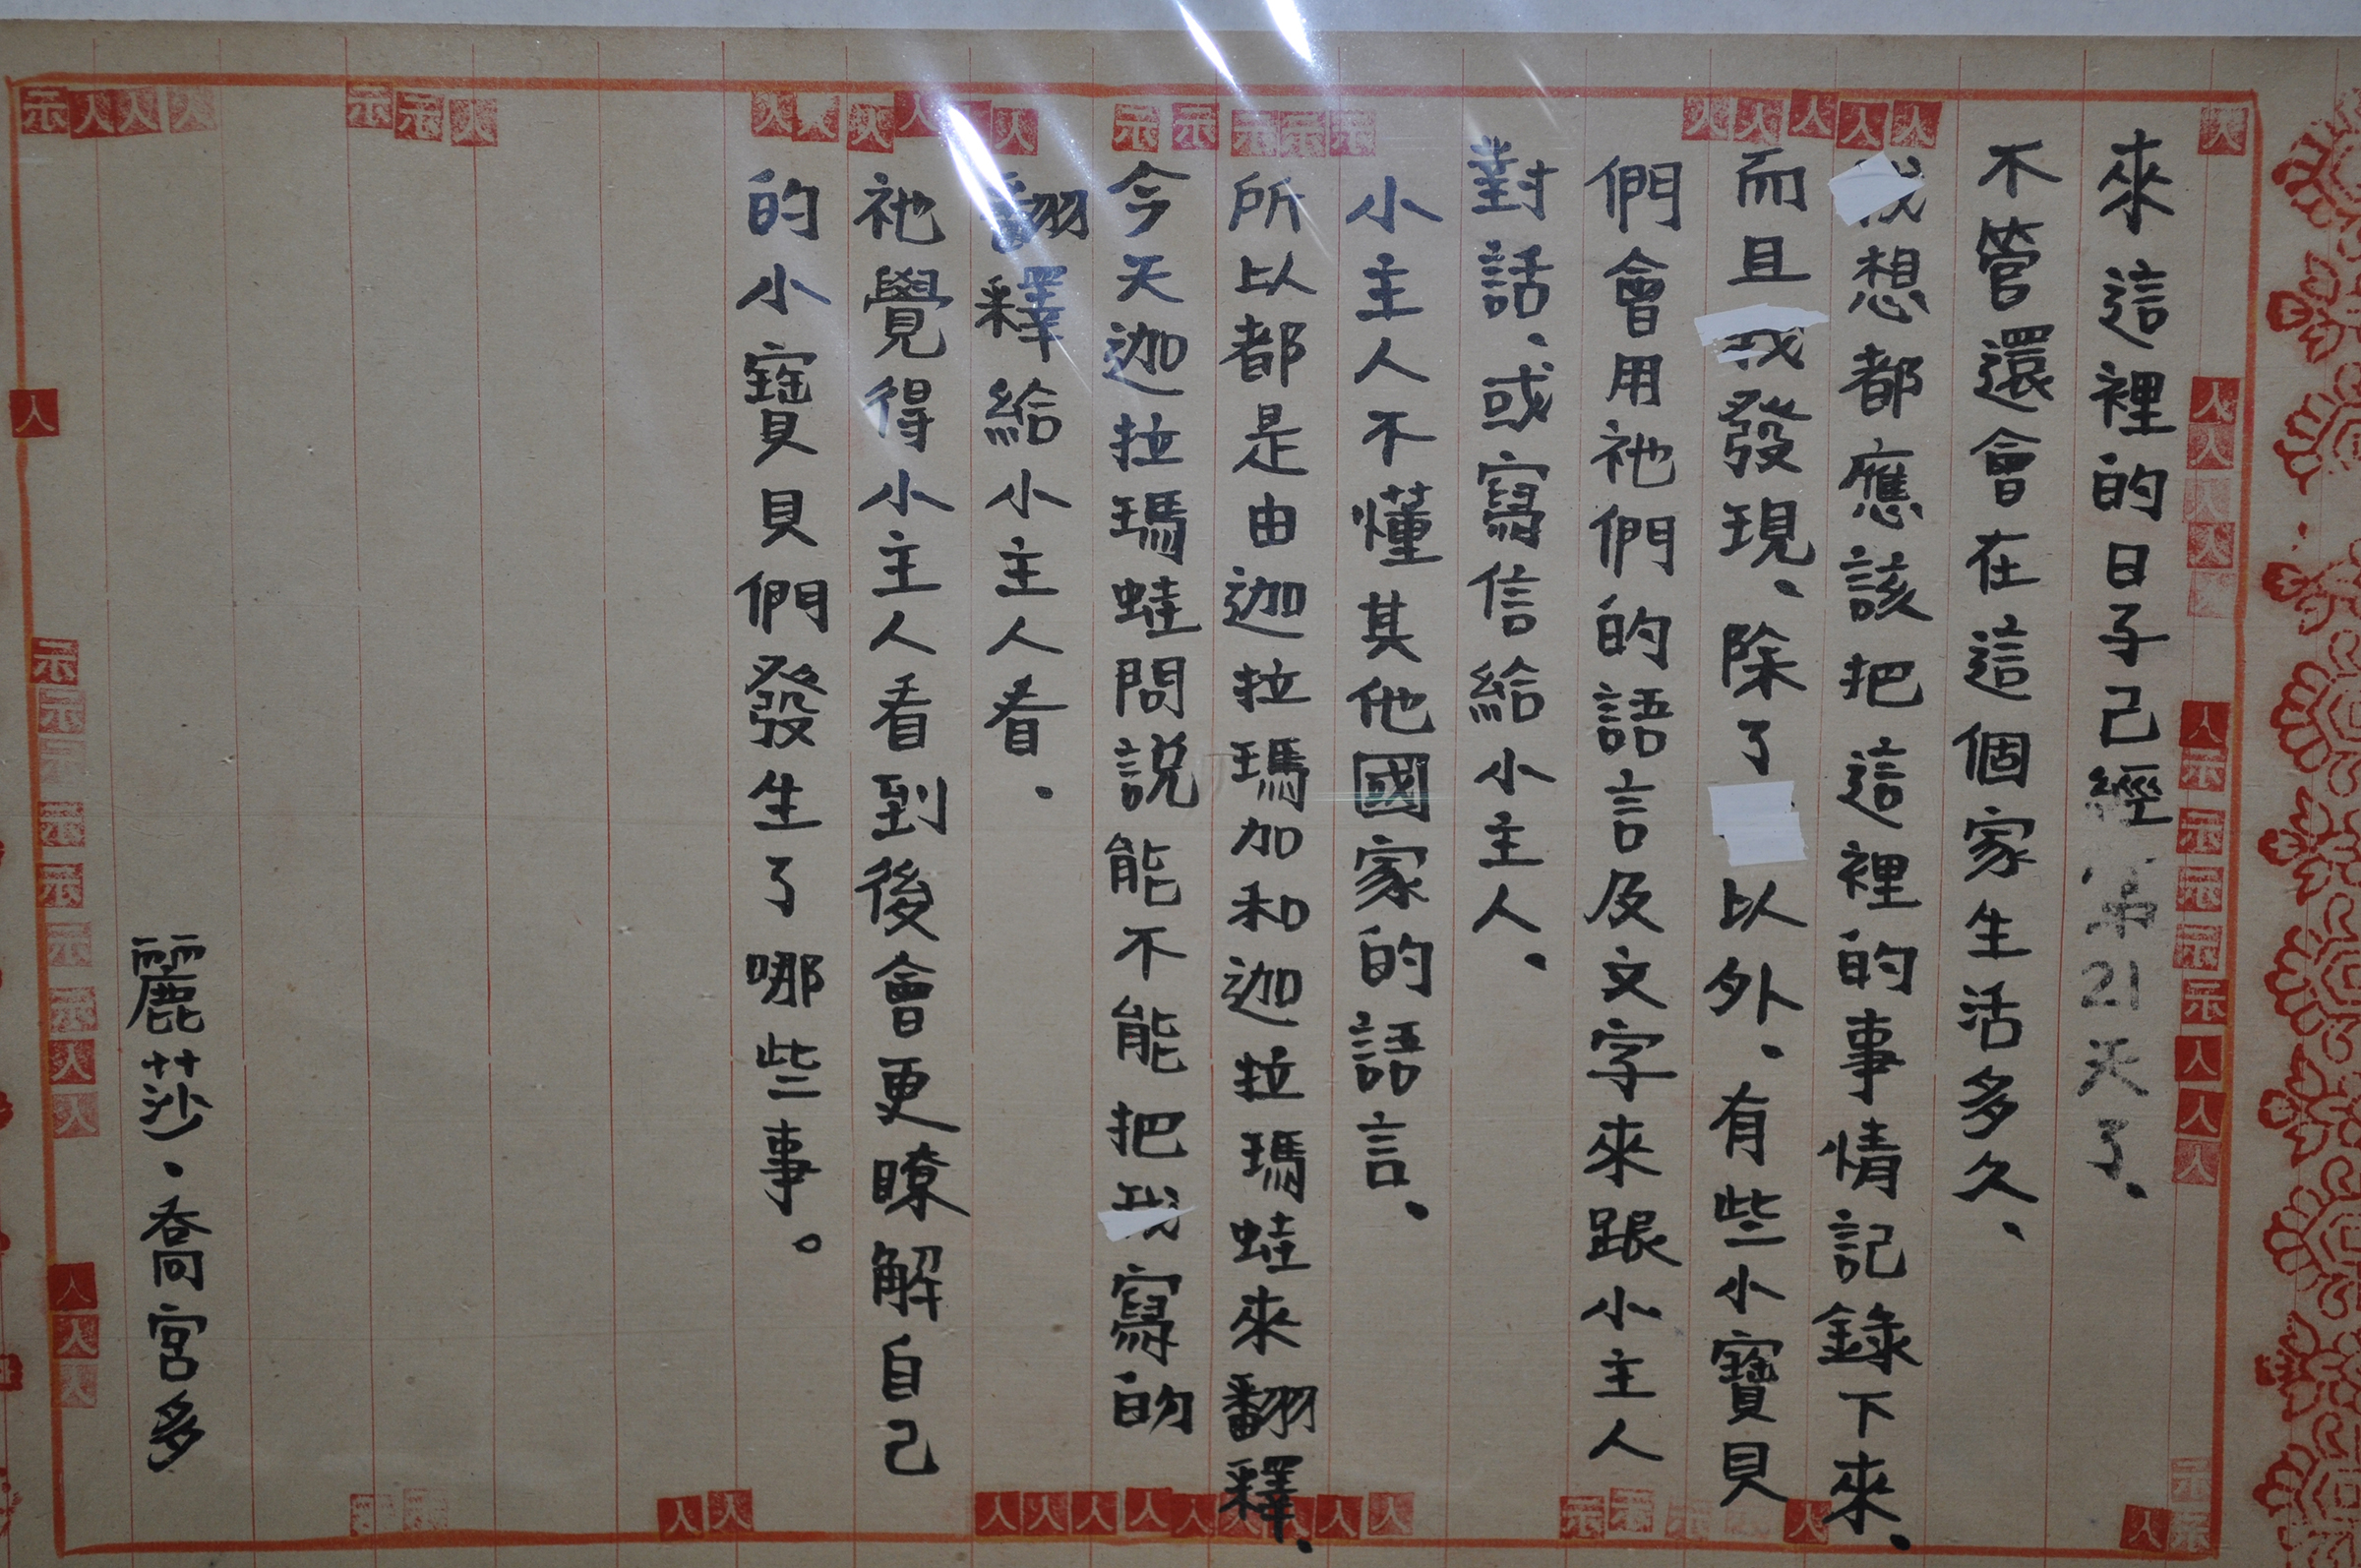 來這裡的日子己經第21天了.
不管還會在這個家生活多久、
我想都應該把這裡的事情記錄下來.
而且我發現、除了以外.有些小寶貝
們會用祂們的語言及文字來跟小主人
對話.或寫信給小主人.
小主人不懂其他國家的語言.
所以都是由迦拉瑪加和迦拉瑪蛙來翻釋.
今天迦拉瑪蛙問說能不能把我寫的
翻釋給小主人看.
祂覺得小主人看到後會更瞭解自己
的小寶貝們發生了哪些事。
麗莎.喬宮多